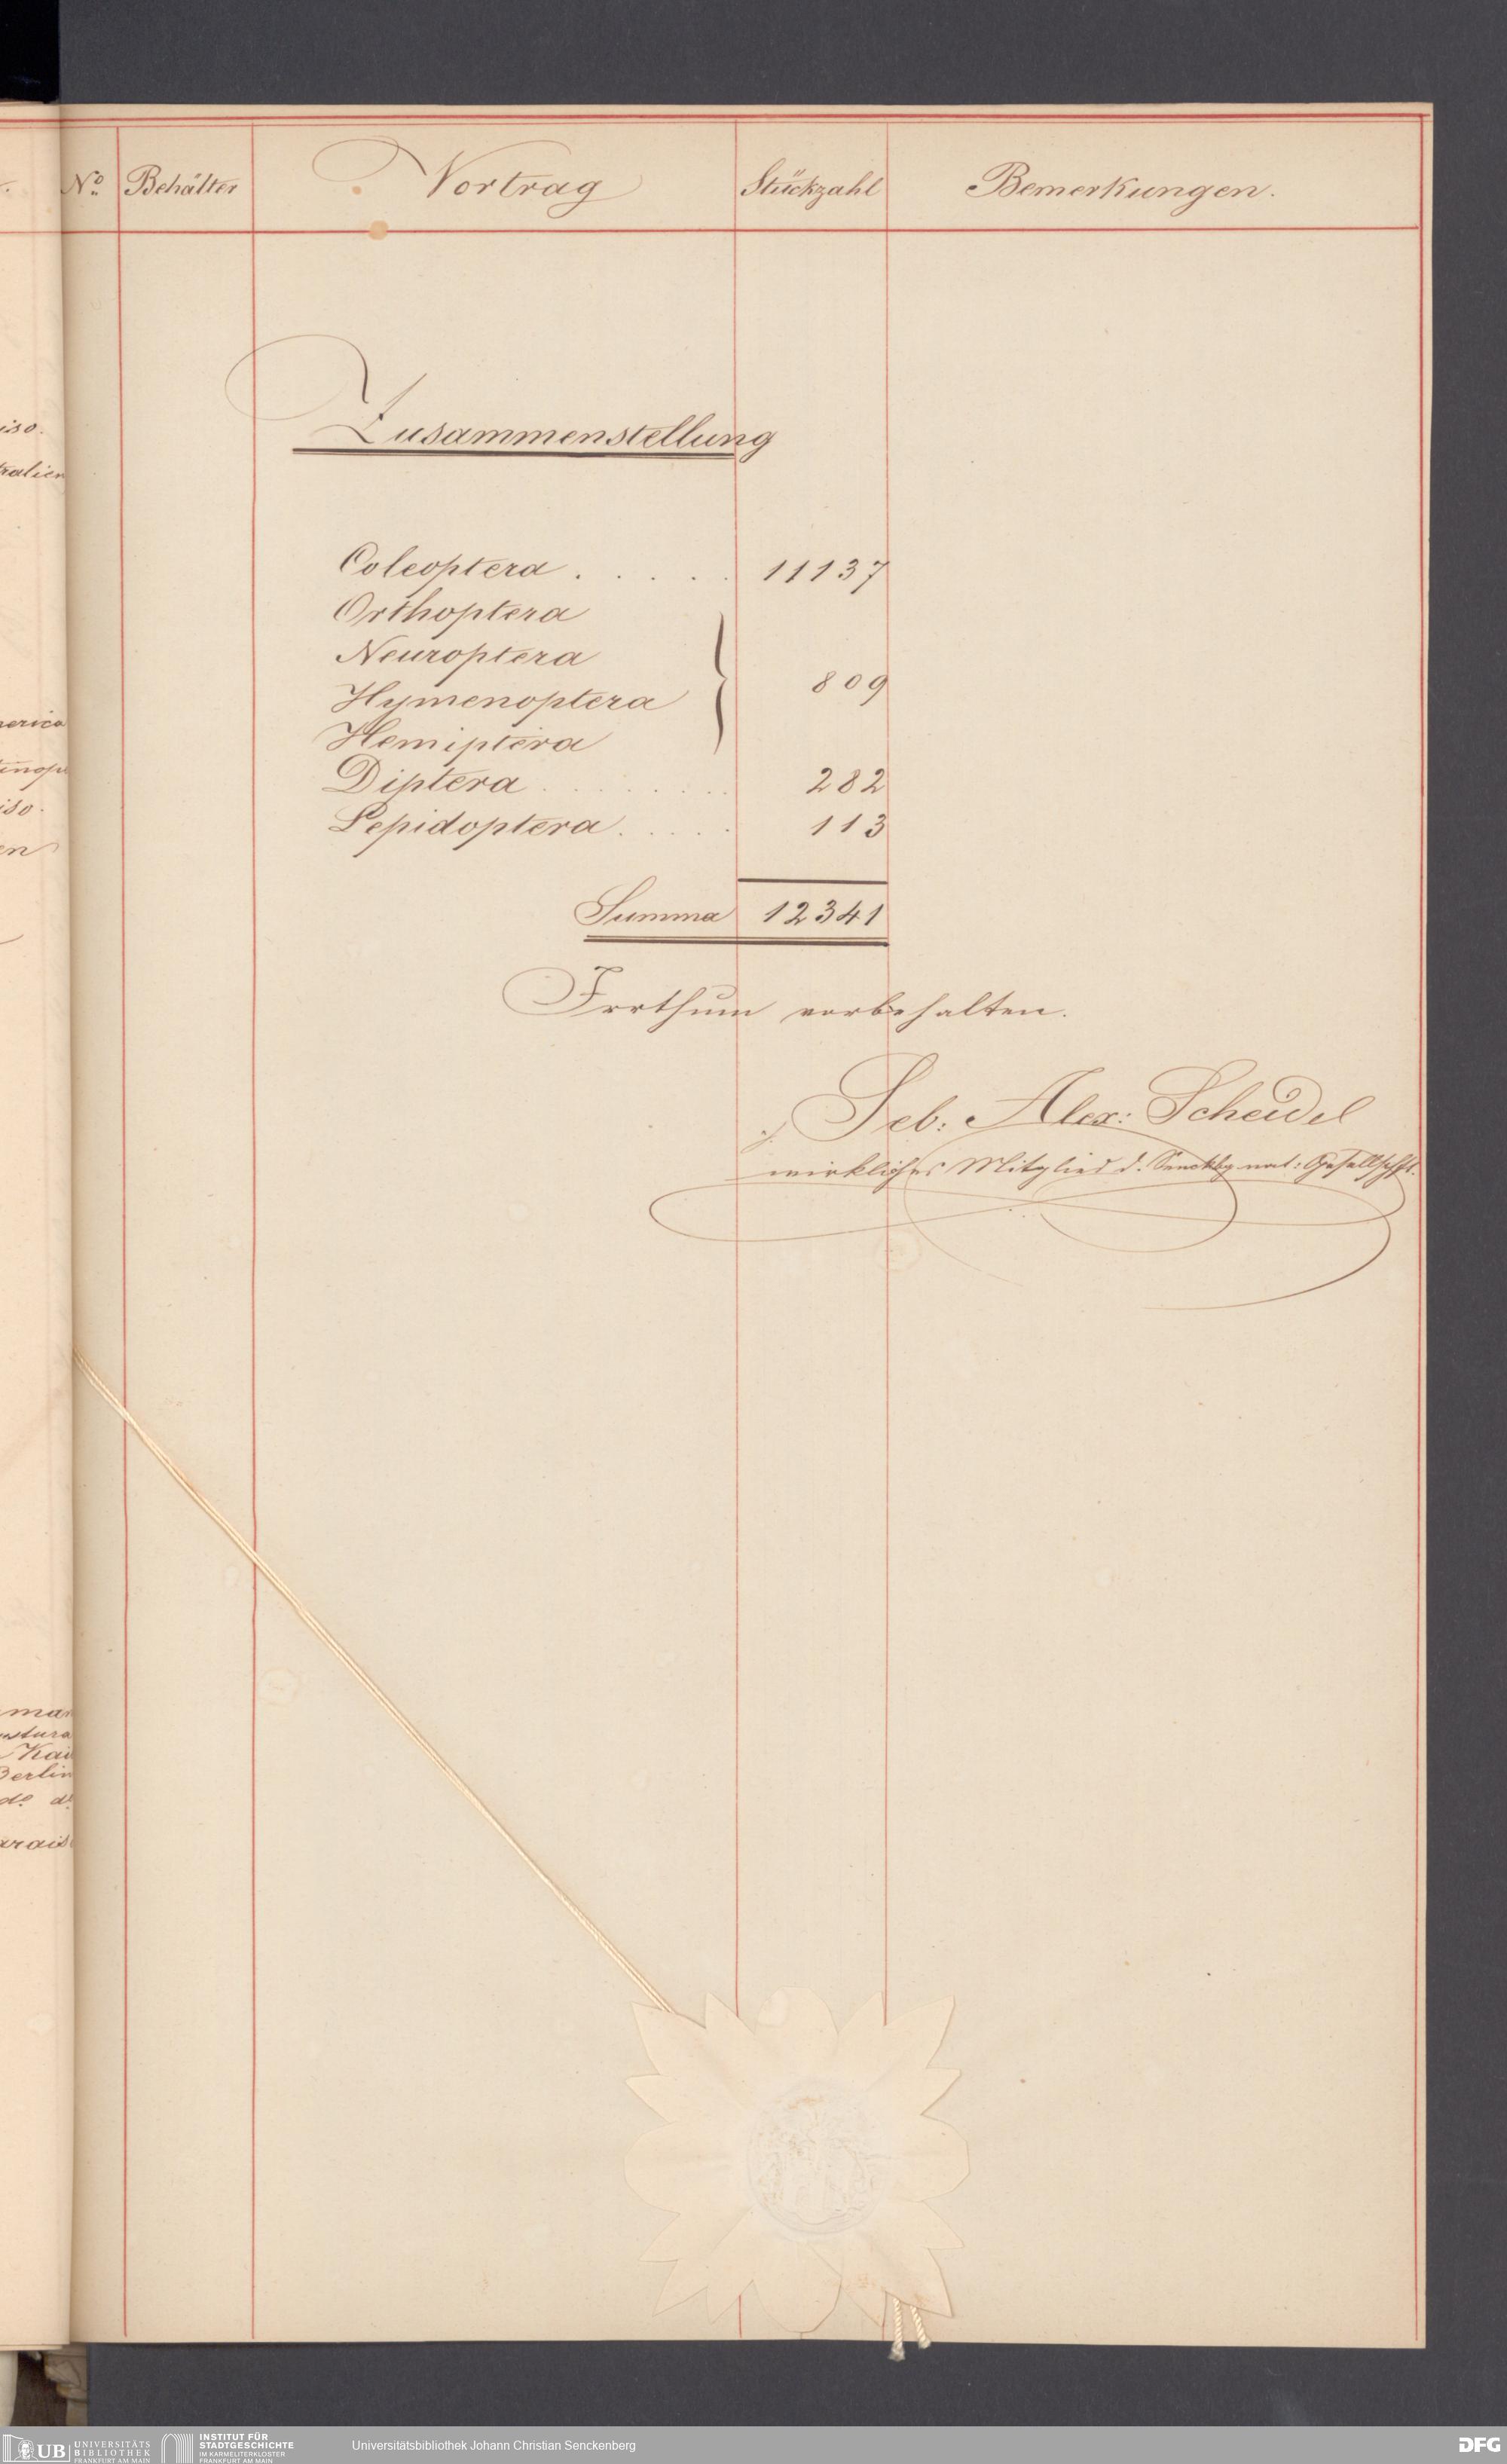 No Behälter Vortrag Stückzahl Bemerkungen.
Zusammenstellung
Coleoptera . . . . . 11137
Orthoptera
Neuroptera
Hymenoptera
809
Hemiptera
Diptera . . . . . . . . 282
Lepidoptera . . . . . 113
Summa 12341
Irrthum vorbehalten.
Seb: Alex: Scheidel
wirkliches Mitglied d. Senckbg nat: Gesellschft.
iso.
ralien
erica
inop
iso.
en
man
stura
Kai
Berlin
do d
arais
UB UNIVERSITÄTS
BIBLIOTHEK
FRANKFURT AM MAIN
INSTITUT FÜR
STADTGESCHICHTE
IM KARMELITERKLOSTER
FRANKFURT AM MAIN
Universitätsbibliothek Johann Christian Senckenberg
DFG